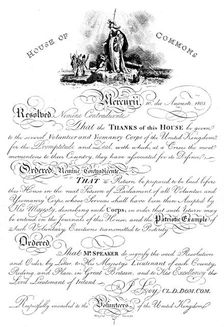 HOUSE OF COMMONS
Mercurii, 10, die Augusti 1803
Resolved, Nemine Contradicente
That the THANKS of this HOUSE be given
to the several Volunteer and Yeomanry Corps of the United Kingdom
for the Promptitude and Zeal with which, at a Crisis the most
momentous to this Country, they have associated for its Defence.
Ordered, Nemine Contradicente
THAT a Return be prepared to be laid before
this House in the next Session of Parliament of all Volunteer and
Yeomanry Corps whose Services shall have been then accepted by
His Majesty, describing each Corps, in order that such Return may
be entered on the Journals of this House, and the Patriotic Example
of such Voluntary Exertions transmitted to Posterity.
Ordered,
That Mr. SPEAKER do signify the said Resolution
and Order, by Letter, to His Majesty's Lieutenant of each County,
Riding, and Place, in Great Britain, and to His Excellency the
Lord Lieutenant of Ireland.
J. Ley, CL. D. DOM. COM.
Respectfully inscribed to the Volunteers of the United Kingdom